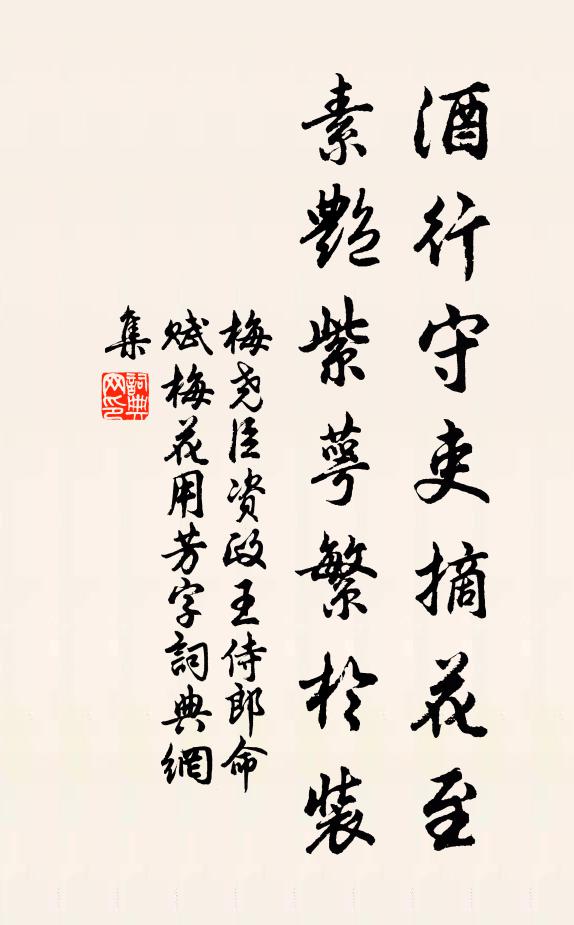 酒行守吏摘花至
素艷紫萼繁於裝
梅堯臣資政王侍郎命
賦梅花用芳字詞典網
集
詞典网印